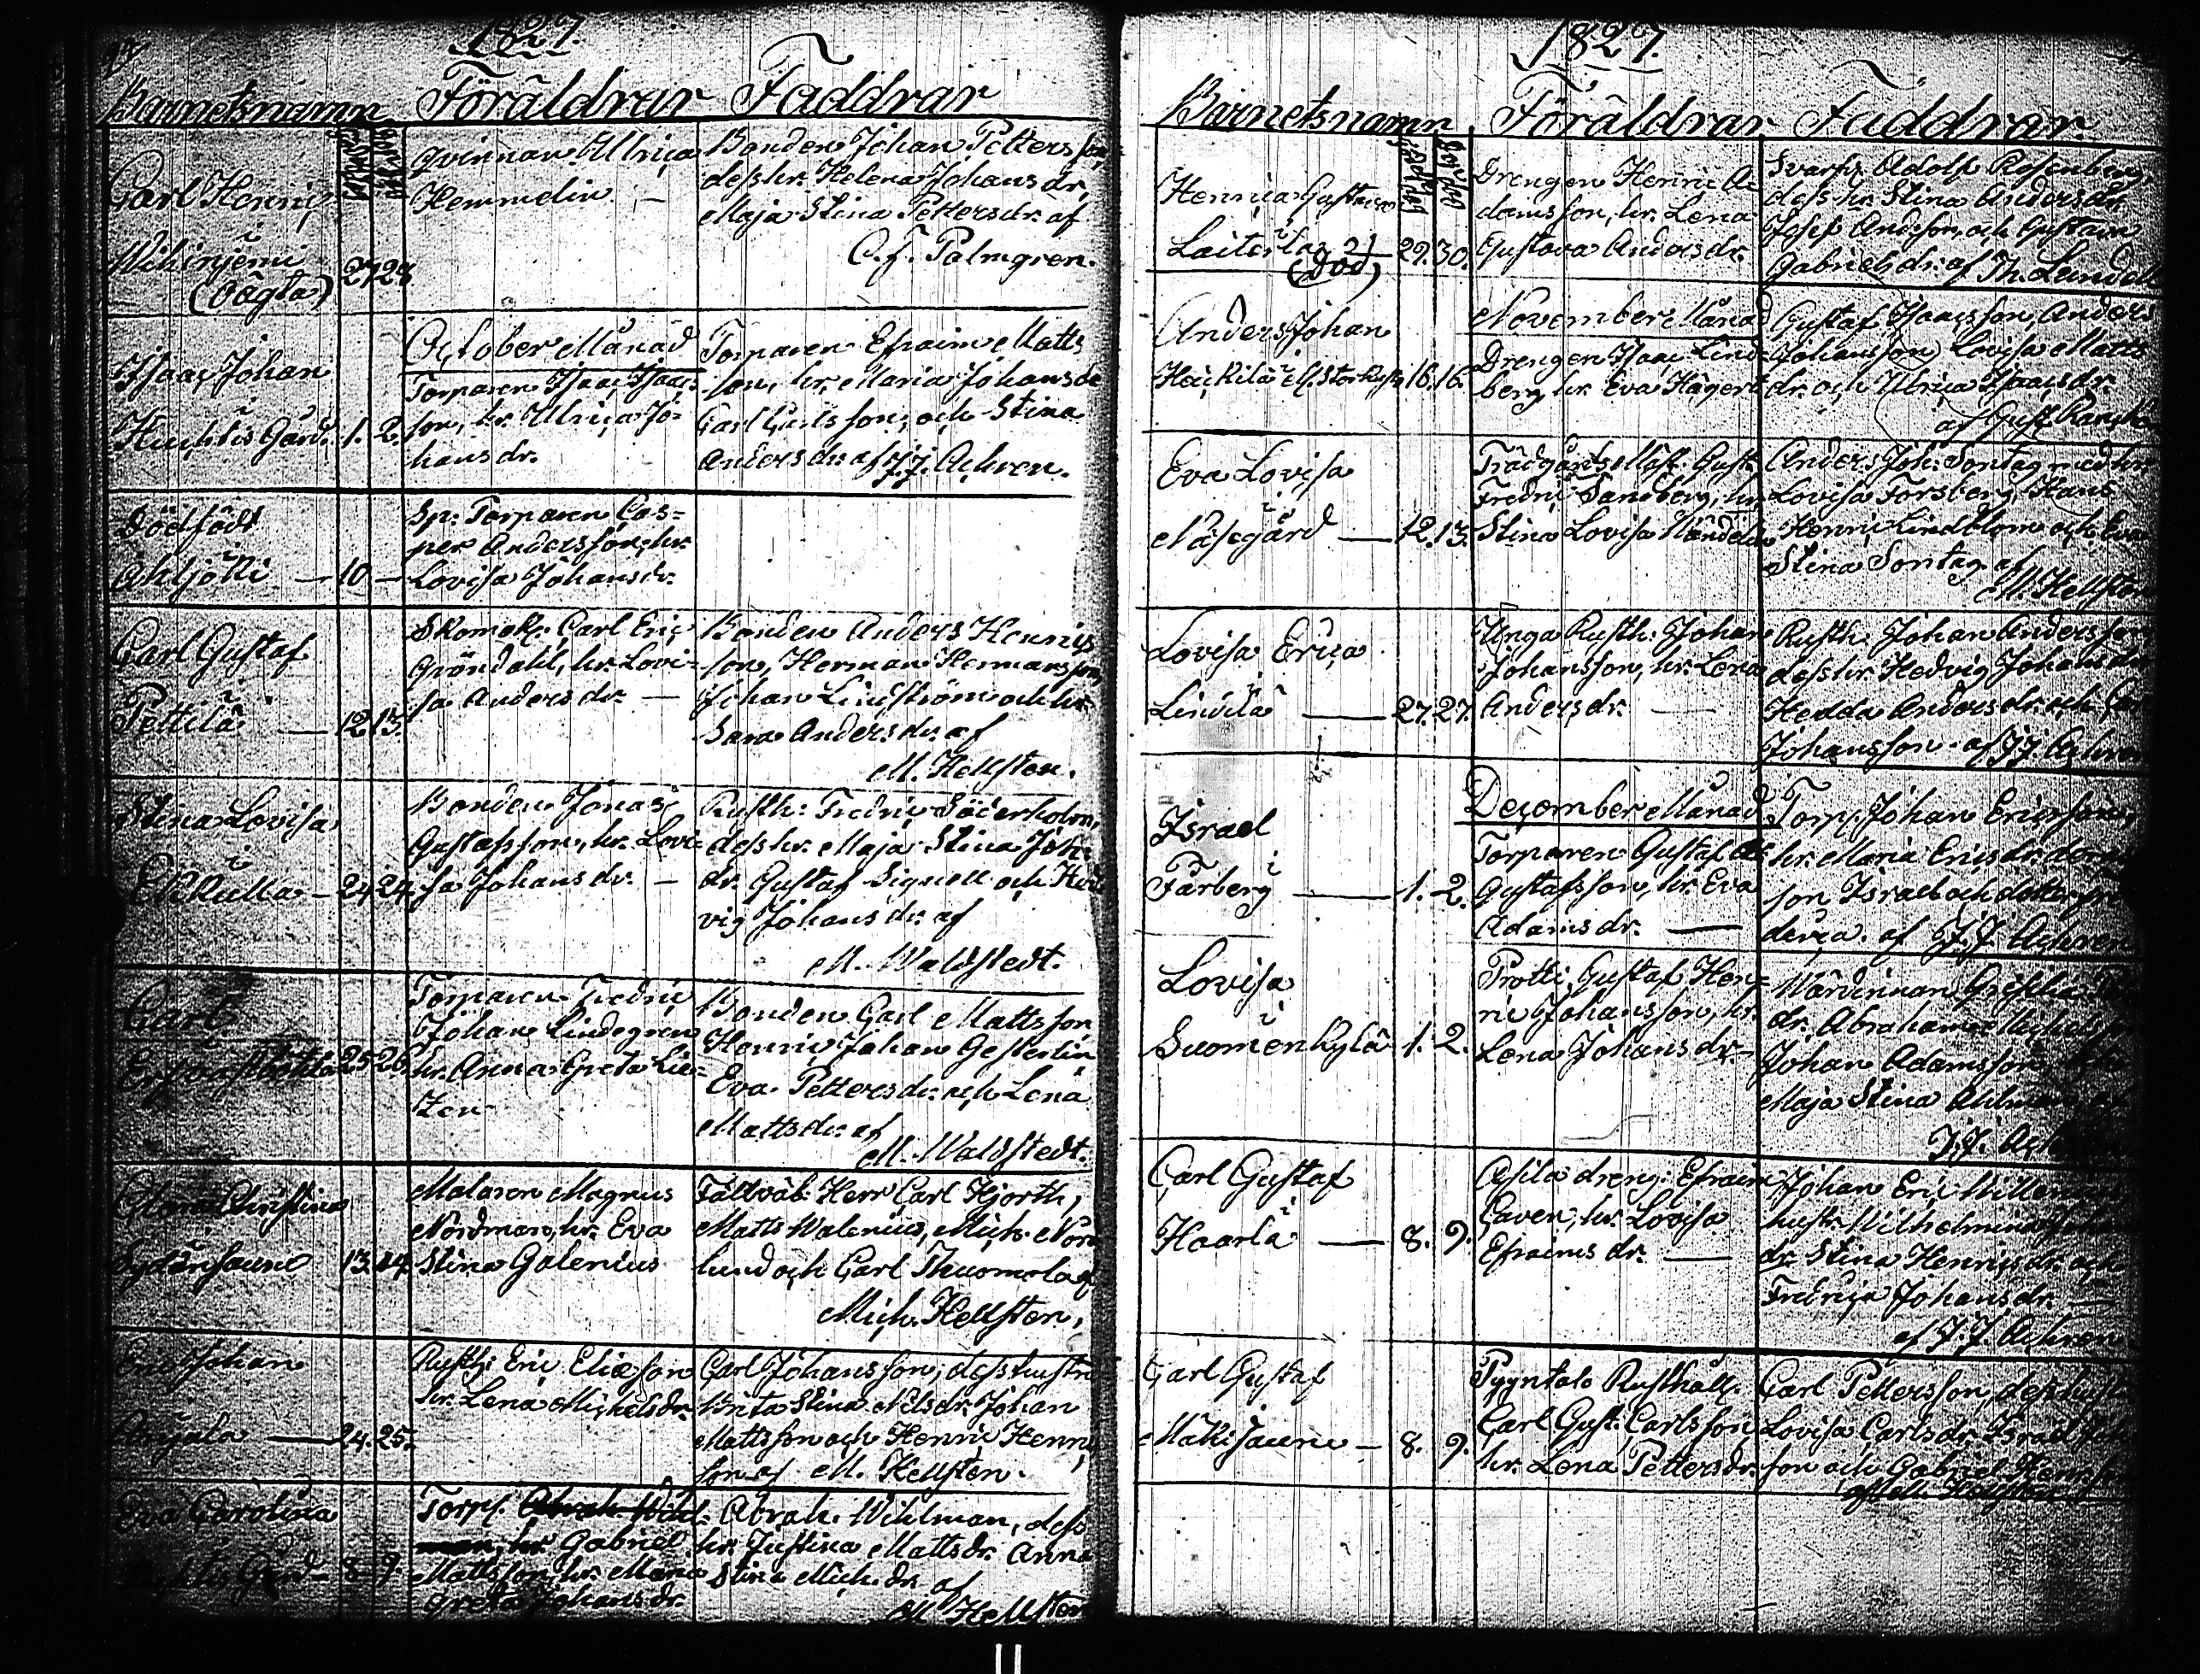 1827.
Barnetsnamn Föräldrar Faddrar
Carl Henric
i
Wihiniemi
(Oägta) 27 28
Qvinnan Ulrica
Hemmelin —
Bonden Johan Petters son,
dess hr. Helena Johans dr,
Maja Stina Petters dr. af
C. f. Palmgren.
October Månad
Isaac Johan
i
Huchtis Gård. 1. 2.
Torparen Isaac Isaacs
son, hr. Ulrica Jo-
hans dr.
Torparen Efraim Matts
son, hr. Maria Johans dr
Carl Carlsson, och Stina
Anders dr. af J.J. Achren.
Dödfödt
i
Ahljoki — 10 —
Sp: Torparen Cas=
per Andersson, hr.
Lovisa Johansdr.
Carl Gustaf
i
Pettilä — 12. 13.
Skomak: Carl Eric
Gröndahl, hr. Lovi-
sa Anders dr. —
Bonden Anders Henrics
son, Herman Hermansson,
Johan Lindström och hr.
Sara Anders dr. af
M. Hellsten.
Stina Lovisa
i
Elkkulla — 24 24
Bonden Jonas
Gustafsson, hr. Lovi-
sa Johans dr. —
Rusth: Fredric Söderholm,
dess hr. Maja Stina Joh:
dr. Gustaf Signell och Hed
vig Johans dr. af
M. Waldstedt.
Carl
25 26
Torparen Fredric
Johan Lindegren
hr. Anna Greta Lie-
zen
Bonden Carl Mattsson
Henric Johan Gesterlin
Eva Petters dr. och Lena
Matts dr. af
M. Waldstedt.
Christina
13. 14.
Malaren Magnus
Nordman, hr. Eva
Stina Galenius
Fältwäb: Herr Carl Hjorth,
Matts Walenius, Mich. Nord
lund och Carl Thuomola af
Mich. Hellsten.
Eric Johan
Anjala — 24. 25.
Rusth: Eric Eliæson
hr. Lena Michelsdr.
Carl Johansson, dess hustru
Brita Stina Nils dr. Johan
Mattsson och Henric Henric
son af M. Hellsten.
Eva Carolina
8 9
Torp. Abrah. Wihl-
man, hr. Gabriel
Mattsson, hr. Maria
Greta Johans dr.
Abrah. Wihlman, dess
hr. Justina Matts dr. Anna
Stina Mich. dr. af
M. Hellsten
1827.
Barnetsnamn Föräldrar Faddrar.
Henrica Gustava
i
Laiterla 29. 30.
(död)
Drengen Henric A-
damsson, hr. Lena
Gustava Anders dr.
Svarfv. Adolf Rosenberg,
dess hr. Stina Anders dr,
Josef Andsson, och Gustava
Gabriels dr. af Th. Lundell
November Månad
Anders Johan
i
16. 16.
Drengen Isaac Lind-
berg, hr. Eva Hägert
Gustaf Isaacsson, Anders
Johansson Lovisa Matts
dr. och Ulrica Isaacs dr.
af Gust.
Eva Lovisa
i
Näsegård — 12. 13.
Trädgårds Mäst: Gust:
Fredric Sandberg, hr.
Stina Lovisa
Anders Joh: Sontag med hr.
Lovisa Forsberg, Hans
Henric Lindblom och Eva
Stina Sontag af
M. Hellsten
Lovisa Erica
i
Linvila — 27. 27.
Unga Rusth: Johan
Johansson, hr. Lena
Anders dr. —
Rusth: Johan Andersson
dess hr. Hedvig Johans dr
Hedda Anders dr. och
Johansson af J.J. Achren
December Månad
Israel
i
Färberg — 1. 2.
Torparen Gustaf
Gustafsson, hr. Eva
Adams dr. —
Torp. Johan Ericsson,
hr. Maria Erics dr. deras
son Israel och dotter Fre
derica. af J.J. Achren
Lovisa
i
Suomenkylä 1. 2.
Protti Gustaf Hen-
ric Johansson, hr.
Lena Johans dr. —
Wärdinnan
dr. Abraham
Johan Adamsson
Maja Stina Ahlman
J.J. Achren
Carl Gustaf
i
Haarla — 8. 9.
Asila dreng: Efraim
Caven, hr. Lovisa
Efraims dr. —
Johan Eric
hustr. Wilhelmina
dr. Stina Henrics dr. och
Fredrica Johans dr. —
af J.J. Achren
Carl Gustaf
i
Mäkisauru — 8. 9.
Pyyntale Rusthåll:
Carl Gust: Carlsson
hr. Lena Petters dr.
Carl Pettersson, dess hustr
Lovisa Carls dr. Israel
son och Gabriel Henr.
af M. Hellsten